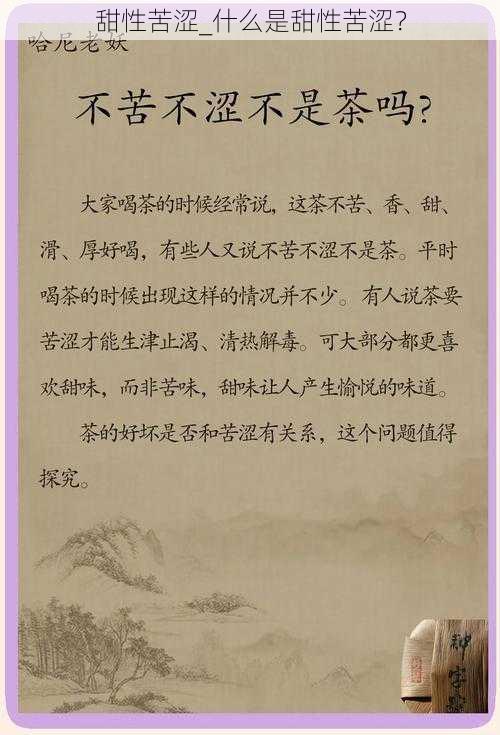 甜性苦涩_什么是甜性苦涩？
哈尼老妖
不苦不涩不是茶吗?
大家喝茶的时候经常说，这茶不苦、香、甜、
滑、厚好喝，有些人又说不苦不涩不是茶。平时
喝茶的时候出现这样的情况并不少。有人说茶要
苦涩才能生津止渴、清热解毒。可大部分都更喜
欢甜味，而非苦味，甜味让人产生愉悦的味道。
茶的好坏是否和苦涩有关系，这个问题值得
探究。